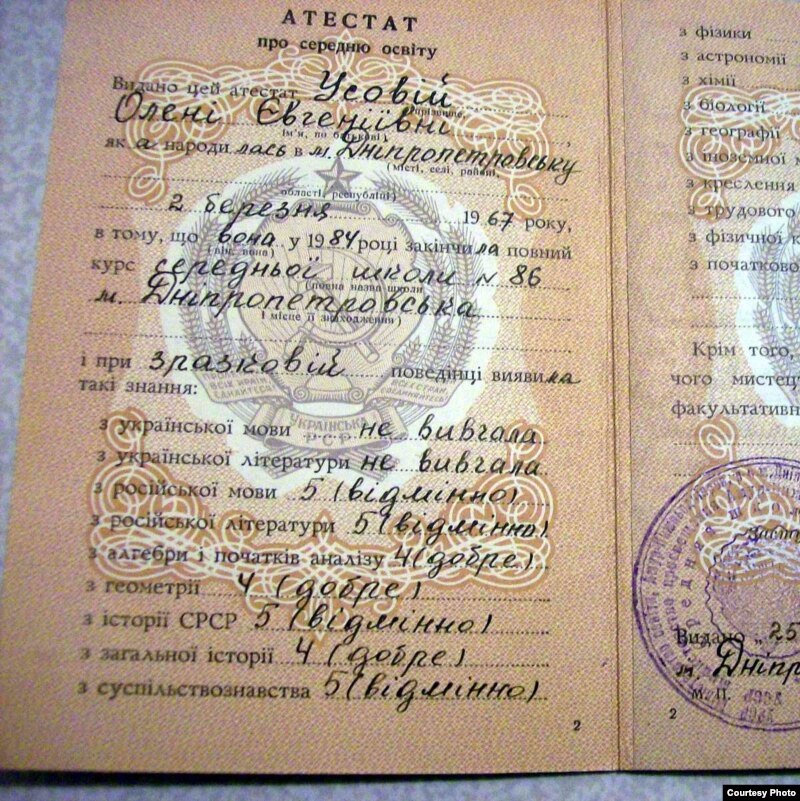 АТЕСТАТ
про середню освіту
Видано цей атестат Усовій
прізвище,
Олені Євгеніївні,
ім'я, по батькові,
як а народилась в м. Дніпропетровську
(місті, селі, районі,
області, республіці)
2 березня 1967 року,
в тому, що вона у 1984 році закінчила повний
(він, вона)
курс середньої школи № 86
(повна назва школи
м. Дніпропетровська
і місце її знаходження)
і при зразковій поведінці виявила
такі знання:
УКРАЇНСЬКА
РСР
з української мови не вивчала
з української літератури не вивчала
з російської мови 5 (відмінно)
з російської літератури 5 (відмінно)
з алгебри і початків аналізу 4 (добре)
з геометрії 4 (добре)
з історії СРСР 5 (відмінно)
з загальної історії 4 (добре)
з суспільствознавства 5 (відмінно)
2
з фізики
з астрономії
з хімії
з біології
з географії
з іноземної м
з креслення
з трудового
з фізичної к
з початково
Крім того,
чого мистец
факультативн
Видано „25
м. Дніпр
М. П.
2
Courtesy Photo